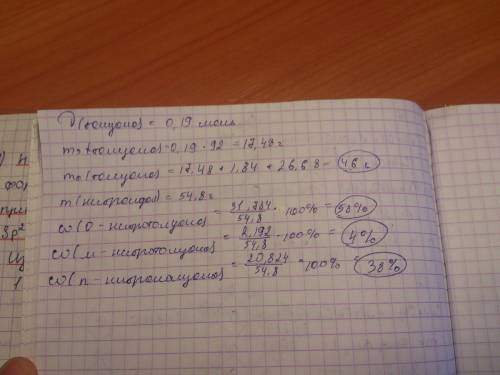 ν(толуола) = 0,19 моль
m₂(толуола) = 0,19 · 92 = 17,48 г
m₀(толуола) = 17,48 + 1,84 + 26,68 = 46 г
m( = 54,8 г
ω(о-нитротолуола) = 31,784 / 54,8 · 100% = 58%
ω(м-нитротолуола) = 2,192 / 54,8 · 100% = 4%
ω(п-нитротолуола) = 20,824 / 54,8 · 100% = 38%